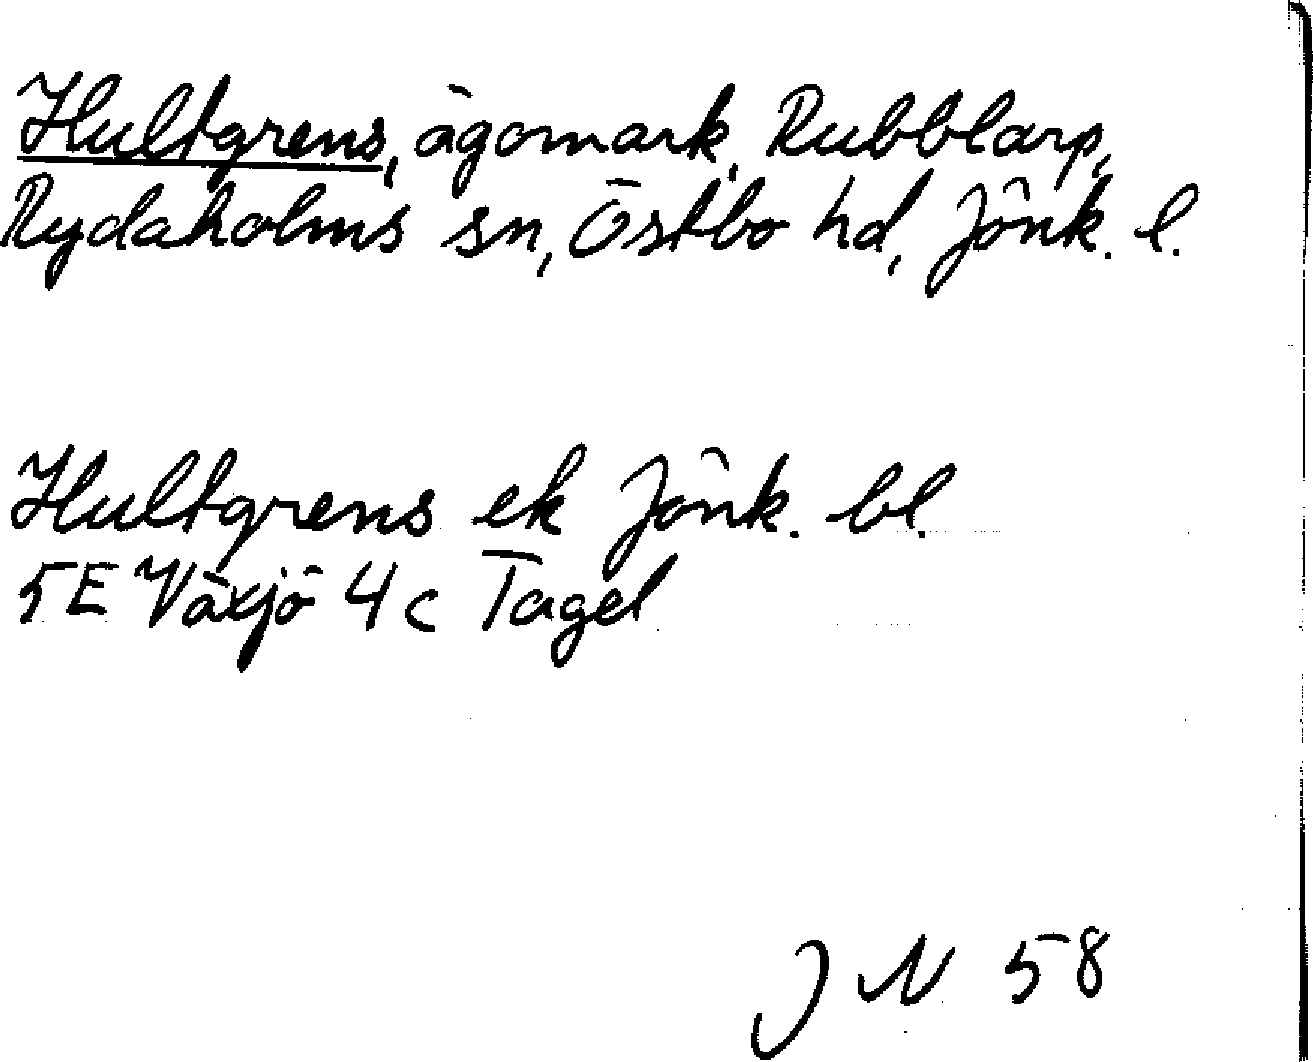 Hultgrens, ägomark, Rubblarp,
Rydaholms sn, Östbo hd, Jönk. l.
Hultgrens ek Jönk. bl.
5E Växjö 4c Tagel
J N 58